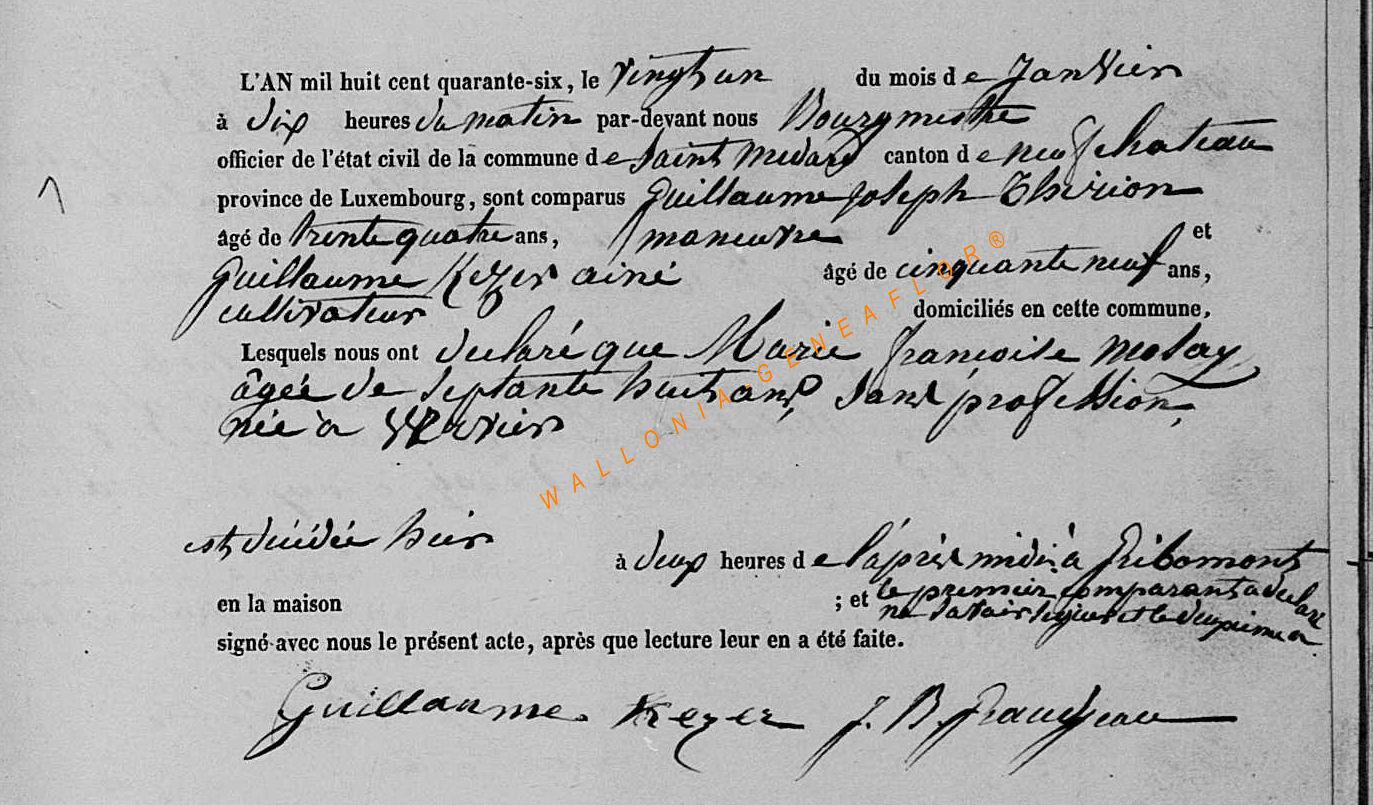 L'AN mil huit cent quarante-six, le vingt un du mois de Janvier
à dix heures du matin par-devant nous Bourgmestre
officier de l'état civil de la commune de Saint Medard canton de neufchateau
province de Luxembourg, sont comparus Guillaume joseph Thirion
âgé de trente quatre ans, maneuvre et
Guillaume Kezer ainé âgé de cinquante neuf ans,
cultivateur domiciliés en cette commune,
Lesquels nous ont declaré que Marie francoise
âgée de septante huit ans, sans profession,
née à
est décédée hier
à deux heures de l'après midi à Gribomont
en la maison ; et le premier comparant a declaré
ne savoir signer et le deuxieme a
signé avec nous le présent acte, après que lecture leur en a été faite.
Guillaume Kezer J. B.
WALLONIA-GENEAFLOR®